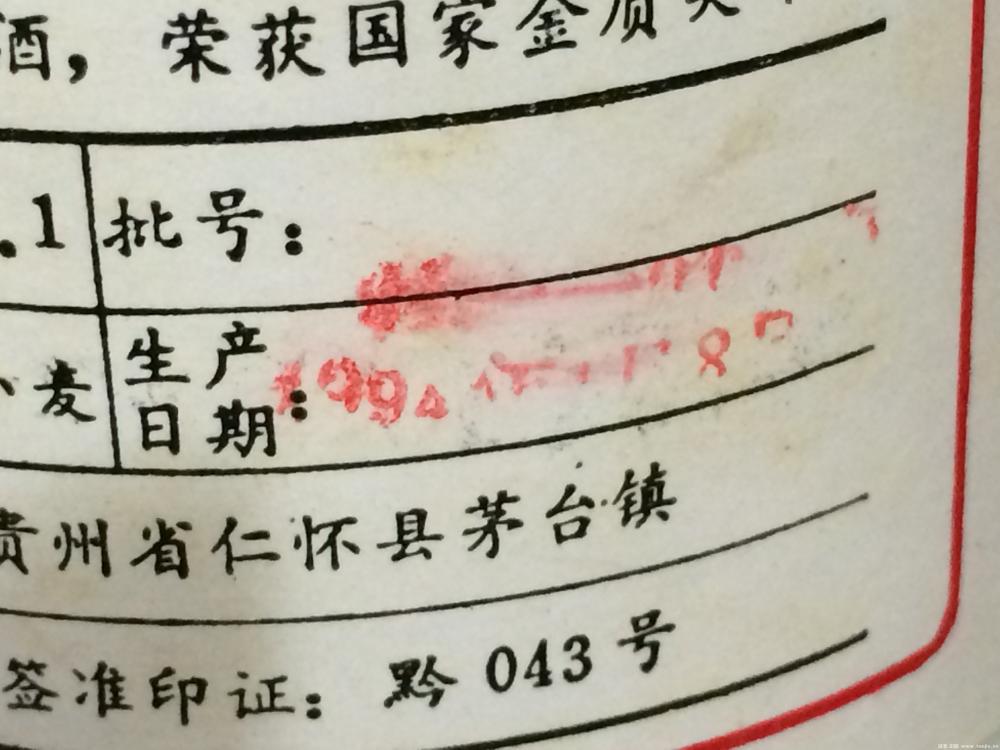 酒，荣获国家金质奖
.1 批号：
小麦 生产日期：199 8
贵州省仁怀县茅台镇
签准印证：黔043号